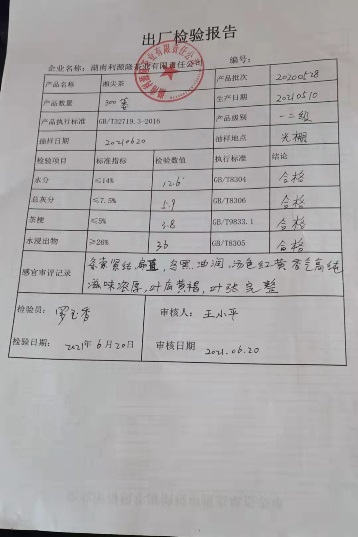 出厂检验报告
企业名称：湖南利源隆茶业有限责任公司 编号：
产品名称 湘尖茶 产品批次 20200528
产品数量 300 生产日期 20210510
产品执行标准 GB/T32719.3-2016 产品级别 一二级
抽样日期 20210620 抽样地点
检验项目 标准指标 检验数值 执行标准 结论
水分 ≤14% 12.6 GB/T8304 合格
总灰分 ≤7.5% 5.9 GB/T8306 合格
茶梗 ≤5% 3.8 GB/T9833.1 合格
水浸出物 ≥26% 36 GB/T8305 合格
感官审评记录 条索紧结,扁直,乌黑油润,汤色红黄香气高纯
滋味浓厚,叶底黄褐,叶张完整
检验员： 罗玉香 审核人： 王小平
检验日期： 2021年6月20日 审核日期 2021.06.20